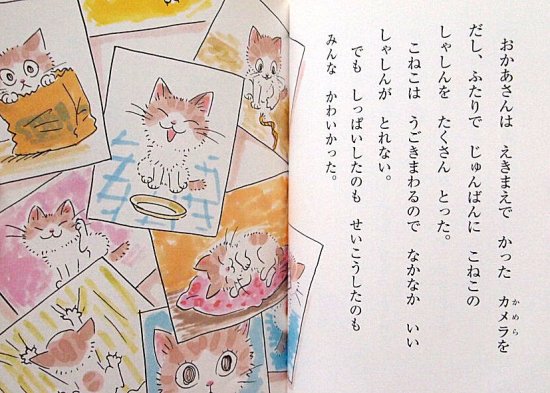 おかあさんは　えきまえで　かった　カメラを
かめら
だし、ふたりで　じゅんばんに　こねこの
しゃしんを　たくさん　とった。
こねこは　うごきまわるので　なかなか　いい
しゃしんが　とれない。
でも　しっぱいしたのも　せいこうしたのも
みんな　かわいかった。